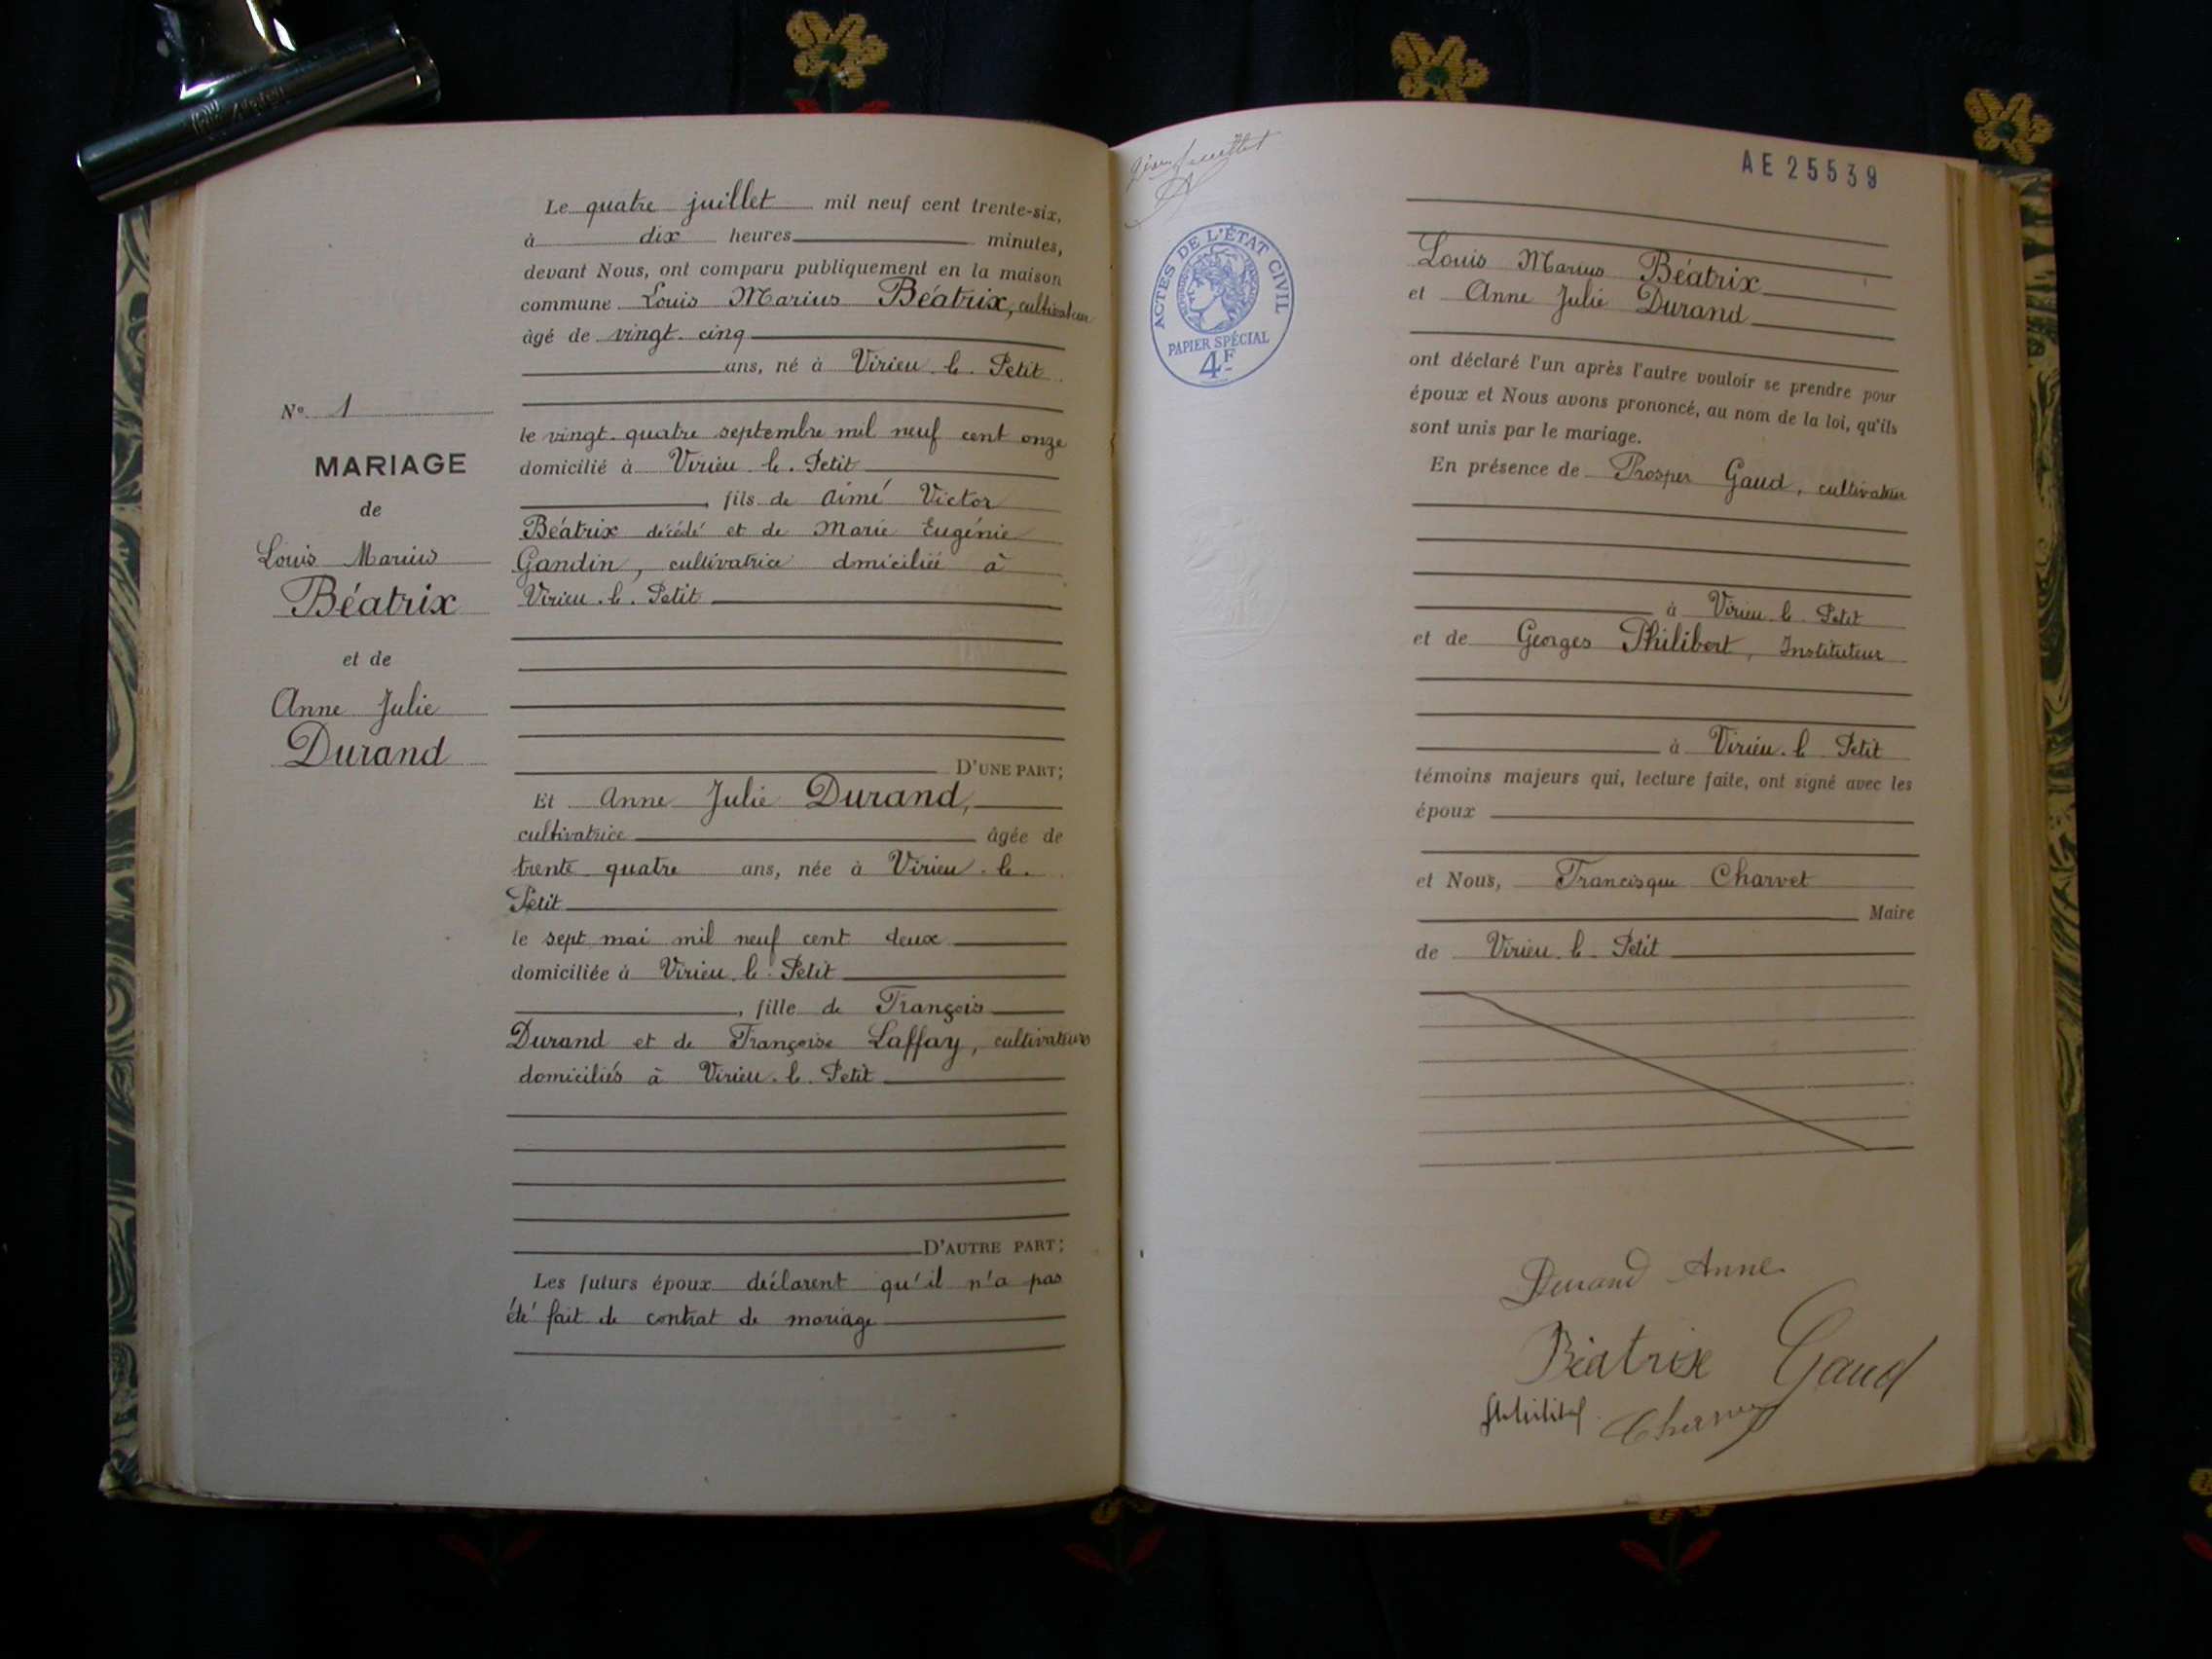 Nº 1
MARIAGE
de
Louis Marius
Béatrix
et de
Anne Julie
Durand
Le quatre juillet mil neuf cent trente-six,
à dix heures minutes,
devant Nous, ont comparu publiquement en la maison
commune Louis Marius Béatrix, cultivateur
âgé de vingt-cinq
ans, né à Virieu-le-Petit
le vingt-quatre septembre mil neuf cent onze
domicilié à Virieu-le-Petit
, fils de Aimé Victor
Béatrix décédé et de Marie Eugénie
Gandin, cultivatrice dmiciliée à
Virieu-le-Petit
D'UNE PART;
Et Anne Julie Durand,
cultivatrice âgée de
trente quatre ans, née à Virieu-le-
Petit
le sept mai mil neuf cent deux
domiciliée à Virieu-le-Petit
, fille de François
Durand et de Françoise Laffay, cultivateurs
domiciliés à Virieu-le-Petit
D'AUTRE PART;
Les futurs époux déclarent qu'il n'a pas
été fait de contrat de mariage
AE 25539
ACTES DE L'ÉTAT CIVIL
PAPIER SPÉCIAL
4F
Louis Marius Béatrix
et Anne Julie Durand
ont déclaré l'un après l'autre vouloir se prendre pour
époux et Nous avons prononcé, au nom de la loi, qu'ils
sont unis par le mariage.
En présence de Prosper Gaud, cultivateur
à Virieu-le-Petit
et de Georges Philibert, Instituteur
à Virieu-le-Petit
témoins majeurs qui, lecture faite, ont signé avec les
époux
et Nous, Francisque Charvet
Maire
de Virieu-le-Petit
Durand Anne
Béatrix Gaud
GPhilibert Charvet